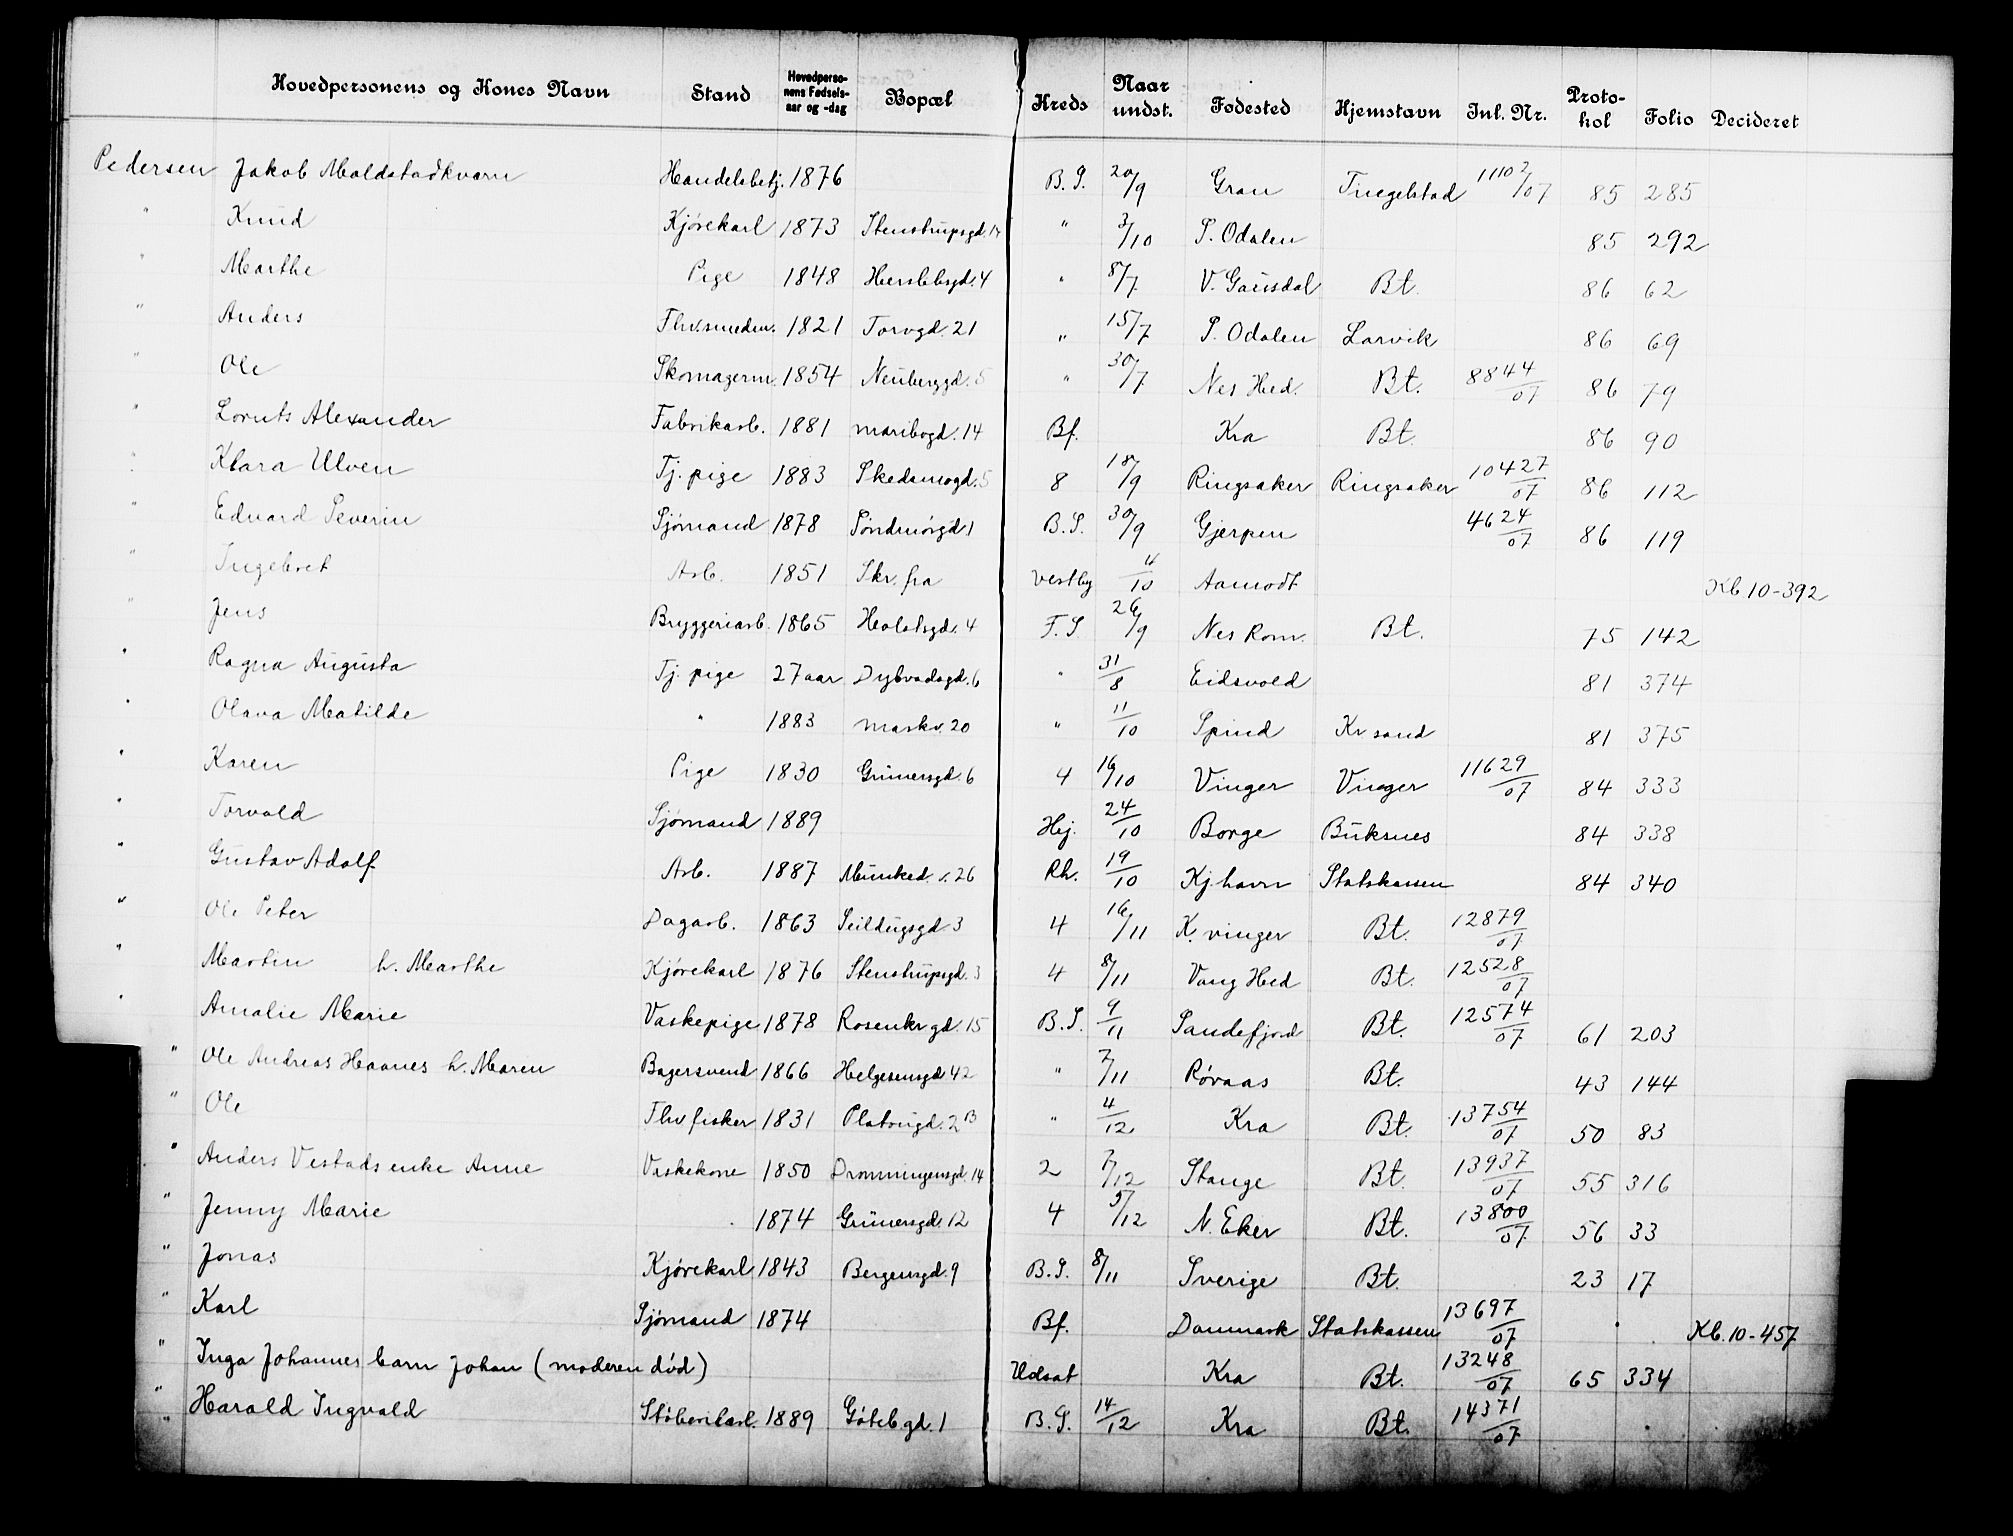 Hovedpersonens og Kones Navn Stand Hovedpersonens Fødselsaar og -dag Bopæl Kreds Naar undst. Fødested Hjemstavn Inl. Nr. Protokol Folio Decideret
Pedersen Jakob Moldstadkvarn Handelsbetj. 1876 B.S. 20/9 Gran Tingelstad 11102/07 85 285
" Knud Kjørekarl 1873 Stenstrupsgd. " 3/10 S. Odalen 85 292
" Marthe Pige 1848 Herslebsgd. 4 " 8/7 V. Gausdal Bt. 86 62
" Anders Fhv.smedm. 1821 Torvgd. 21 " 15/7 S. Odalen Larvik 86 69
" Ole Skomagerm. 1854 Neuberggd. 5 " 30/7 Nes Hed. Bt. 8844/07 86 79
" Lornts Alexander Fabrikarb. 1881 maribogd. 14 Bf. Kra Bt. 86 90
" Klara Ulven Tj. pige 1883 Skedsmogd. 5 8 18/9 Ringsaker Ringsaker 10427/07 86 112
" Edvard Severin Sjømand 1878 Søndmørgd 1 B.S. 30/9 Gjerpen 4624/07 86 119
" Ingebret Arb. 1851 Skr. fra Vestby 4/10 Aamodt Kb 10-392
" Jens Bryggeriarb. 1865 Holstsgd. 4 F.S. 26/9 Nes Rom. Bt. 75 142
" Ragna Augusta Tj. pige 27 aar Dybvadsgd. 6 " 31/8 Eidsvold 81 374
" Olava Matilde " 1883 markv. 20 " 11/10 Spind Kr sand 81 375
" Karen Pige 1830 Grünersgd. 6 4 16/10 Vinger Vinger 11629/07 84 333
" Torvald Sjømand 1889 Hej. 24/10 Borge Buksnes 84 338
" Gustav Adolf Arb. 1887 Munked. v. 26 Rh. 19/10 Kj.havn Statskassen 84 340
" Ole Peter Dagarb. 1863 Seildugsgd 3 4 16/11 K. vinger Bt. 12879/07
" Martin h. Marthe Kjørekarl 1876 Stenstrupsgd. 3 4 8/11 Vang Hed Bt. 12528/07
" Amalie Marie Vaskepige 1878 Rosenkr gd. 15 B.S. 9/11 Sandefjord Bt. 12574/07 61 203
" Ole Andreas Haanes h. Maren Bagersvend 1866 Helgesensgd 42 " 7/11 Røraas Bt. 43 144
" Ole Fhv fisker 1831 Platougd. 2 B " 4/12 Kra Bt. 13754/07 50 83
" Anders Vestads enke Anne Vaskekone 1850 Dronningensgd. 14 2 7/12 Stange Bt. 13937/07 55 316
" Jenny Marie 1874 Grünersgd. 12 4 5/12 N. Eker Bt. 13800/07 56 33
" Jonas Kjørekarl 1843 Bergensgd. 9 B.S. 8/11 Sverige Bt. 23 17
" Karl Sjømand 1874 Bf. Danmark Statskassen 13697/07 Kb. 10-457
" Inga Johannes barn Johan (moderen død) Udsat Kra Bt. 13248/07 65 334
" Harald Ingvald Støberiarb. 1889 Gøteb.gd. 1 B.S. 14/12 Kra Bt. 14371/07